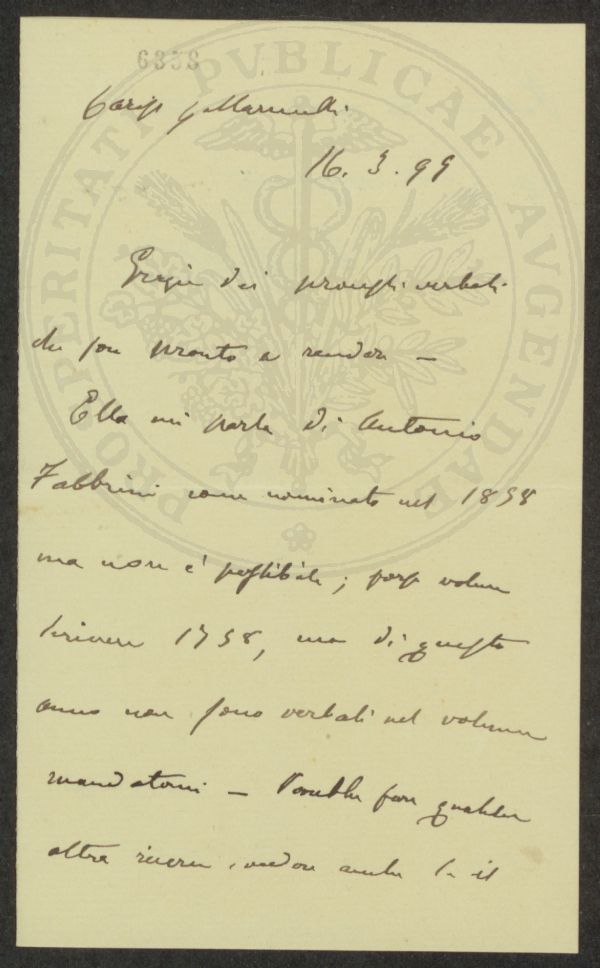 6338
PROSPERITATI PVBLICAE AVGENDAE
16. 3. 99
Grazie dei verbali
che son pronto a rendere —
Ella mi parla di Antonio
Fabbrini come nominato nel 1858
ma non è possibile; forse volle
scrivere 1758, ma di questo
anno non sono verbali nel volume
mandatomi — Potrebbe fare qualche
altra ricerca, vedere anche se il